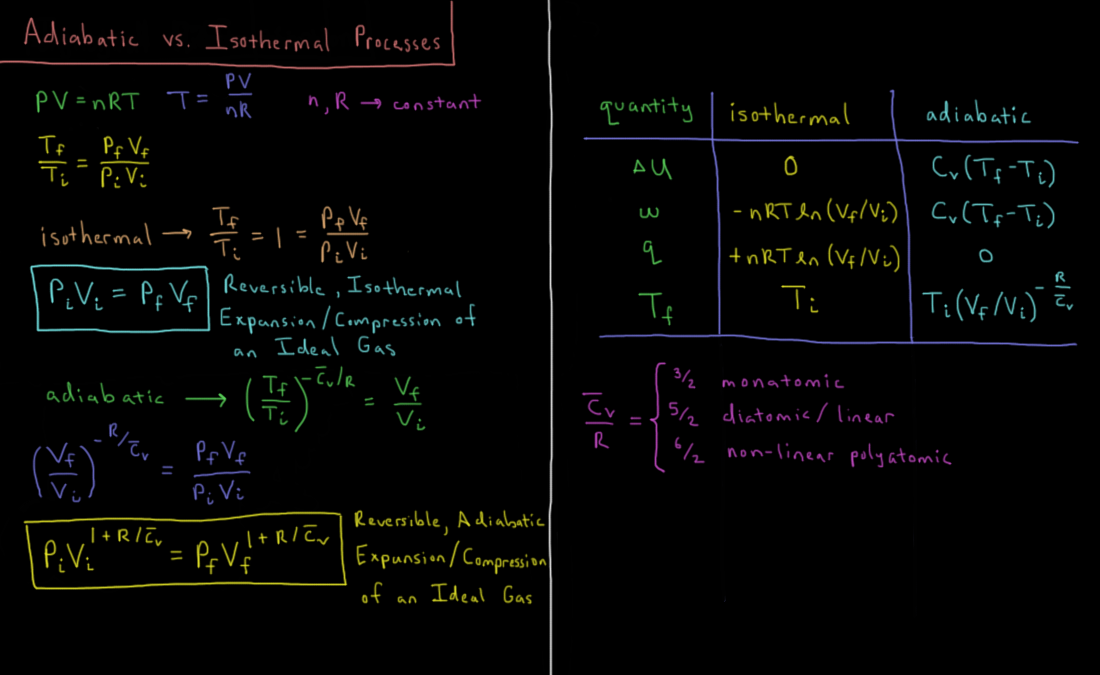 Adiabatic vs. Isothermal Processes
PV = nRT T = PV/nR n, R → constant
T_f/T_i = P_f V_f / P_i V_i
isothermal → T_f/T_i = 1 = P_f V_f / P_i V_i
P_i V_i = P_f V_f
Reversible, Isothermal
Expansion/Compression of
an Ideal Gas
adiabatic → (T_f/T_i)^(-C̅_v/R) = V_f/V_i
(V_f/V_i)^(-R/C̅_v) = P_f V_f / P_i V_i
P_i V_i^(1+R/C̅_v) = P_f V_f^(1+R/C̅_v)
Reversible, Adiabatic
Expansion/Compression
of an Ideal Gas
quantity isothermal adiabatic
ΔU 0 C_v(T_f-T_i)
w -nRT ln(V_f/V_i) C_v(T_f-T_i)
q +nRT ln(V_f/V_i) 0
T_f T_i T_i(V_f/V_i)^(-R/C̅_v)
C̅_v/R = { 3/2 monatomic
5/2 diatomic/linear
6/2 non-linear polyatomic